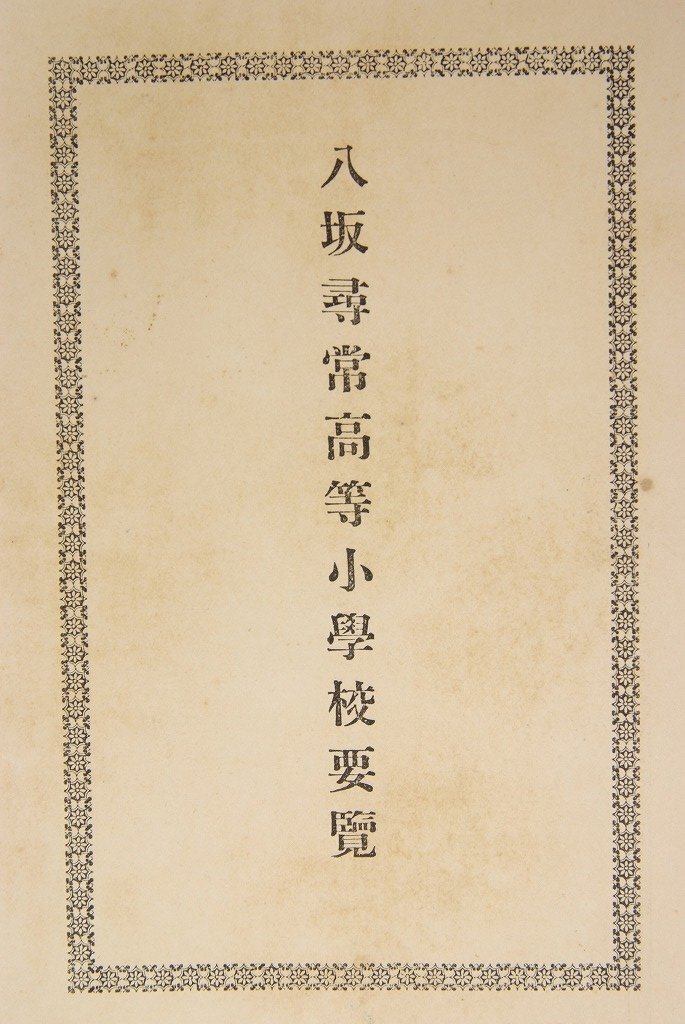 八坂尋常高等小學校要覽